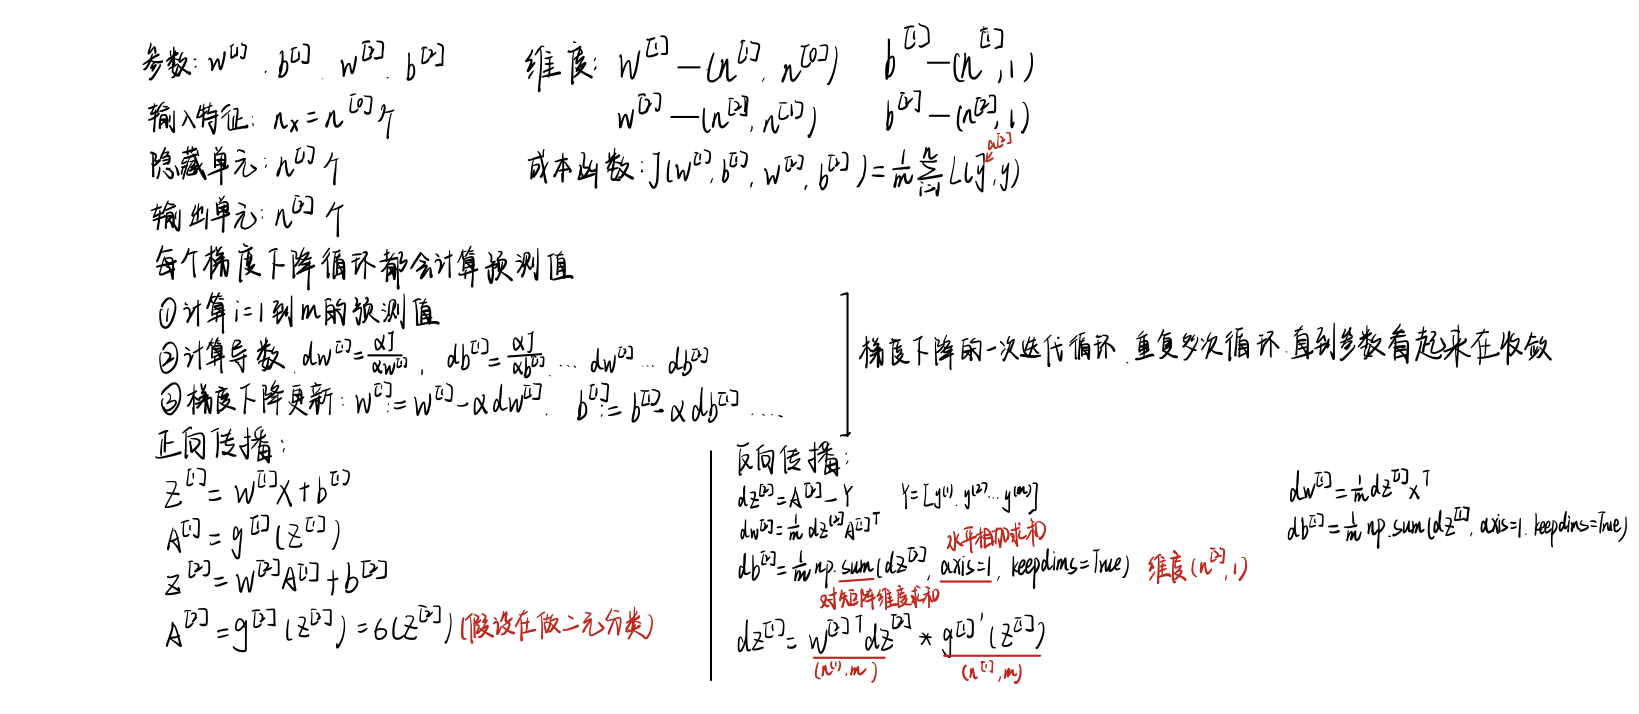 参数: w^[1] . b^[1] . w^[2] . b^[2]
输入特征: n_x = n^[0]个
隐藏单元: n^[1]个
输出单元: n^[2]个
维度: W^[1] — (n^[1], n^[0]) b^[1] — (n^[1], 1)
w^[2] — (n^[2], n^[1]) b^[2] — (n^[2], 1)
成本函数: J(w^[1], b^[1], w^[2], b^[2]) = 1/m ∑_{i=1}^{n} L(ŷ, y)
a^[2]
每个梯度下降循环都会计算预测值
①计算i=1到m的预测值
②计算导数 dw^[1] = αJ/αw^[1] , db^[1] = αJ/αb^[1] ... dw^[2] ... db^[2]
③梯度下降更新: w^[1] := w^[1] - α dw^[1] . b^[1] := b^[1] - α db^[1] ....
梯度下降的一次迭代循环.重复多次循环.直到参数看起来在收敛
正向传播:
z^[1] = w^[1]X + b^[1]
A^[1] = g^[1](z^[1])
z^[2] = w^[2]A^[1] + b^[2]
A^[2] = g^[2](z^[2]) = 6(z^[2]) (假设在做二元分类)
反向传播:
dz^[2] = A^[2] - Y Y = [y^(1) . y^(2) ... y^(m)]
dw^[2] = 1/m dz^[2] A^[1]T
水平相加求和
db^[2] = 1/m np.sum(dz^[2], axis=1, keepdims=True) 维度(n^[2], 1)
对矩阵维度求和
dz^[1] = w^[2]T dz^[2] * g^[1]'(z^[1])
(n^[1], m) (n^[1], m)
dw^[1] = 1/m dz^[1] x^T
db^[1] = 1/m np.sum(dz^[1], axis=1, keepdims=True)